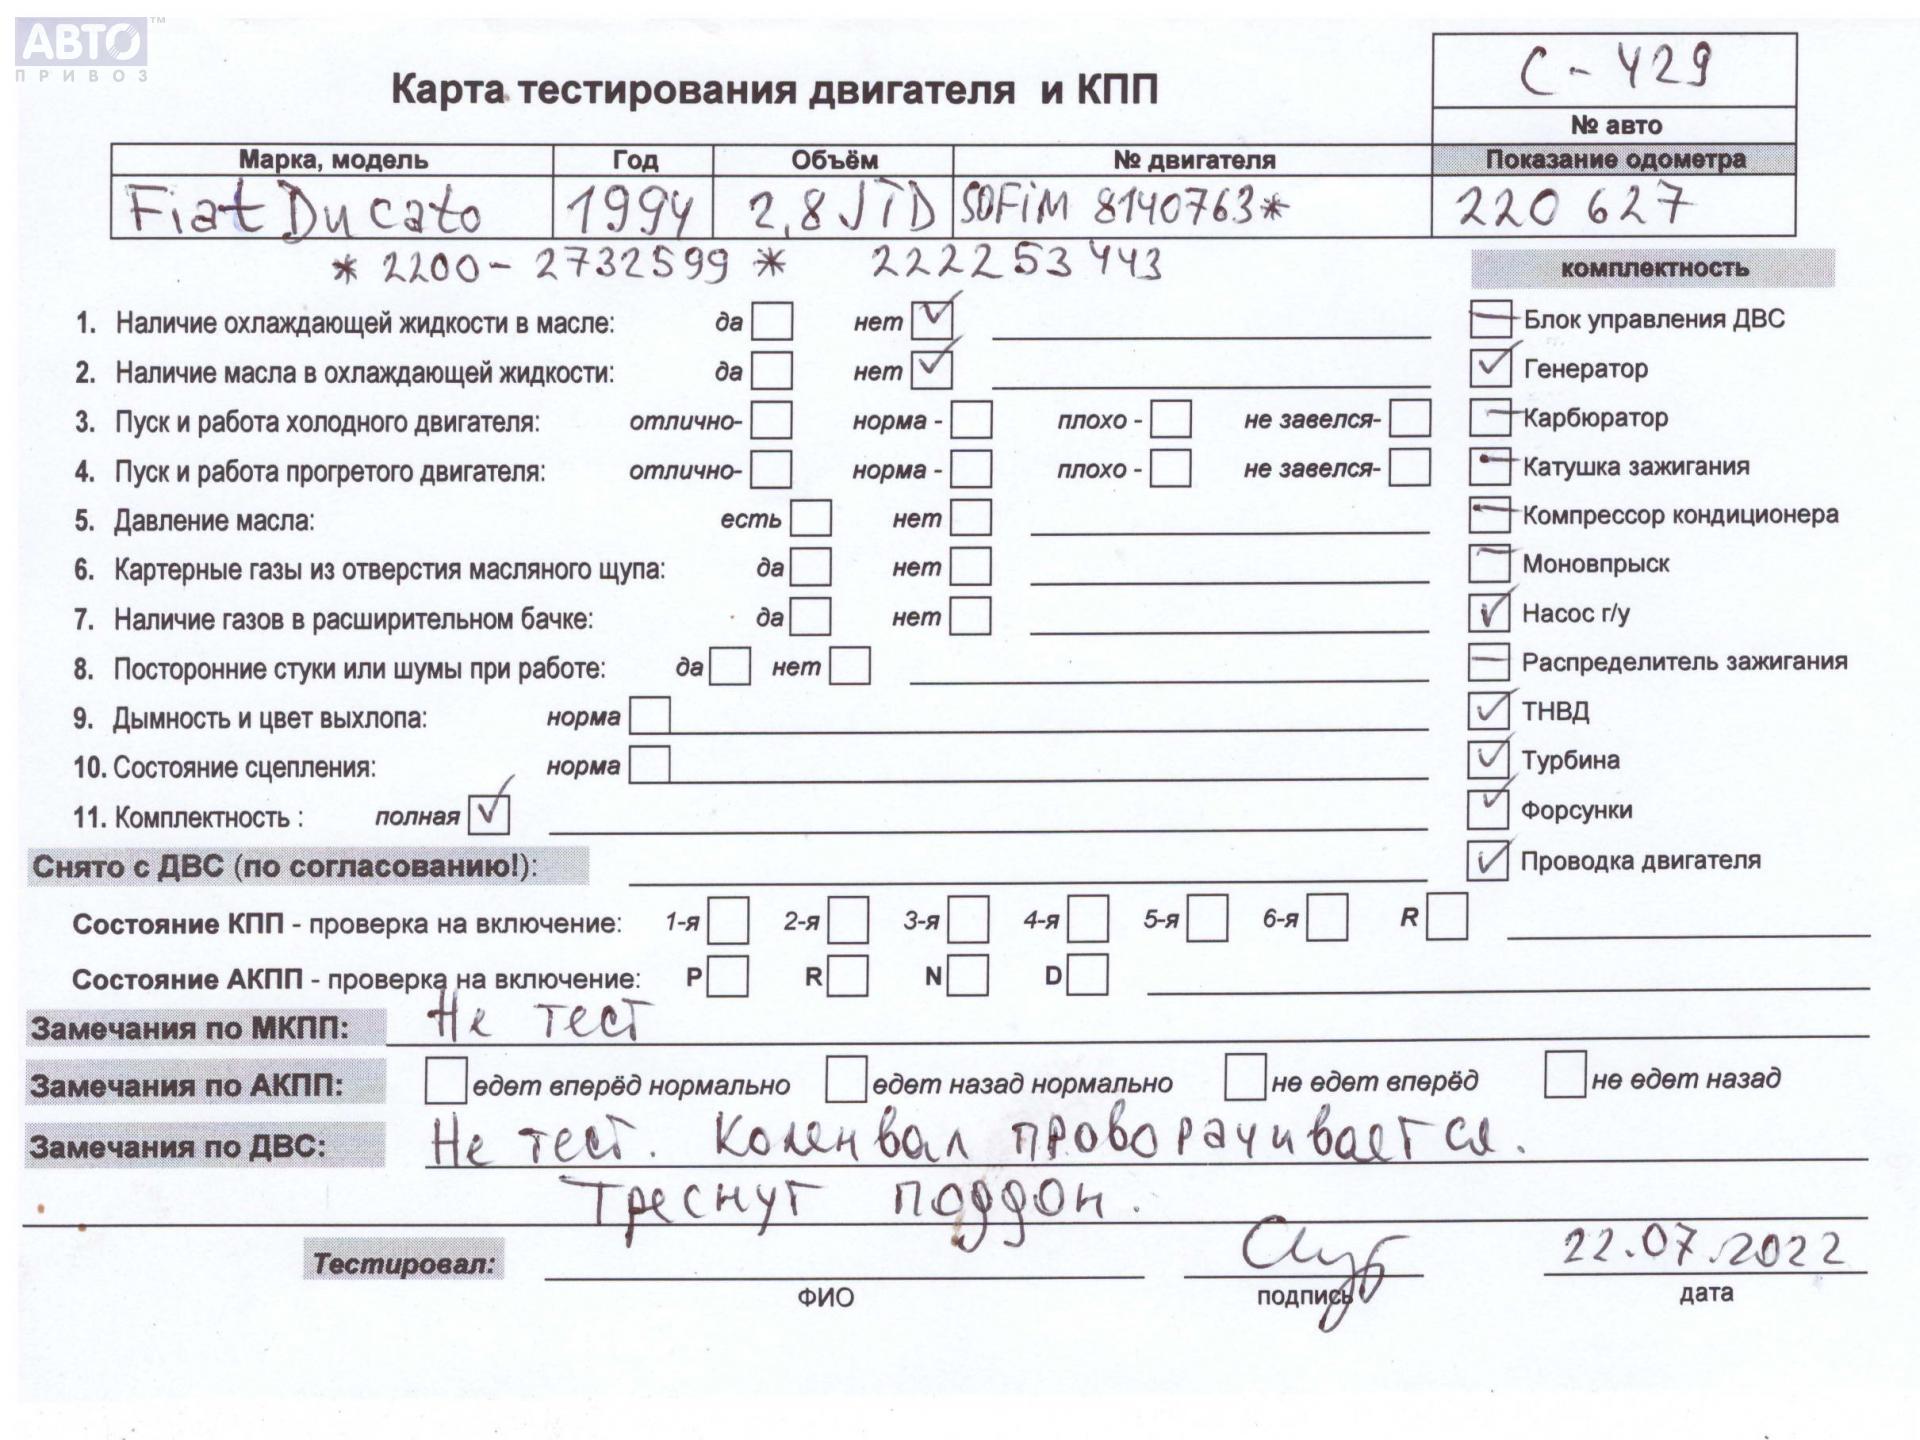 АВТО™
ПРИВОЗ
Карта тестирования двигателя и КПП
С - 429
№ авто
Марка, модель Год Объём № двигателя Показание одометра
Fiat Ducato 1994 2,8 JTD SOFiM 8140763* 220 627
* 2200 - 2732599 * 222253443
комплектность
1. Наличие охлаждающей жидкости в масле: да нет ✓
2. Наличие масла в охлаждающей жидкости: да нет ✓
3. Пуск и работа холодного двигателя: отлично- норма - плохо - не завелся-
4. Пуск и работа прогретого двигателя: отлично- норма - плохо - не завелся-
5. Давление масла: есть нет
6. Картерные газы из отверстия масляного щупа: да нет
7. Наличие газов в расширительном бачке: да нет
8. Посторонние стуки или шумы при работе: да нет
9. Дымность и цвет выхлопа: норма
10. Состояние сцепления: норма
11. Комплектность : полная ✓
— Блок управления ДВС
✓ Генератор
— Карбюратор
— Катушка зажигания
— Компрессор кондиционера
— Моновпрыск
✓ Насос г/у
— Распределитель зажигания
✓ ТНВД
✓ Турбина
✓ Форсунки
✓ Проводка двигателя
Снято с ДВС (по согласованию!):
Состояние КПП - проверка на включение: 1-я 2-я 3-я 4-я 5-я 6-я R
Состояние АКПП - проверка на включение: P R N D
Замечания по МКПП: Не тест
Замечания по АКПП: едет вперёд нормально едет назад нормально не едет вперёд не едет назад
Замечания по ДВС: Не тест. Коленвал проворачивается.
Треснут поддон.
Тестировал: 22.07.2022
ФИО подпись дата